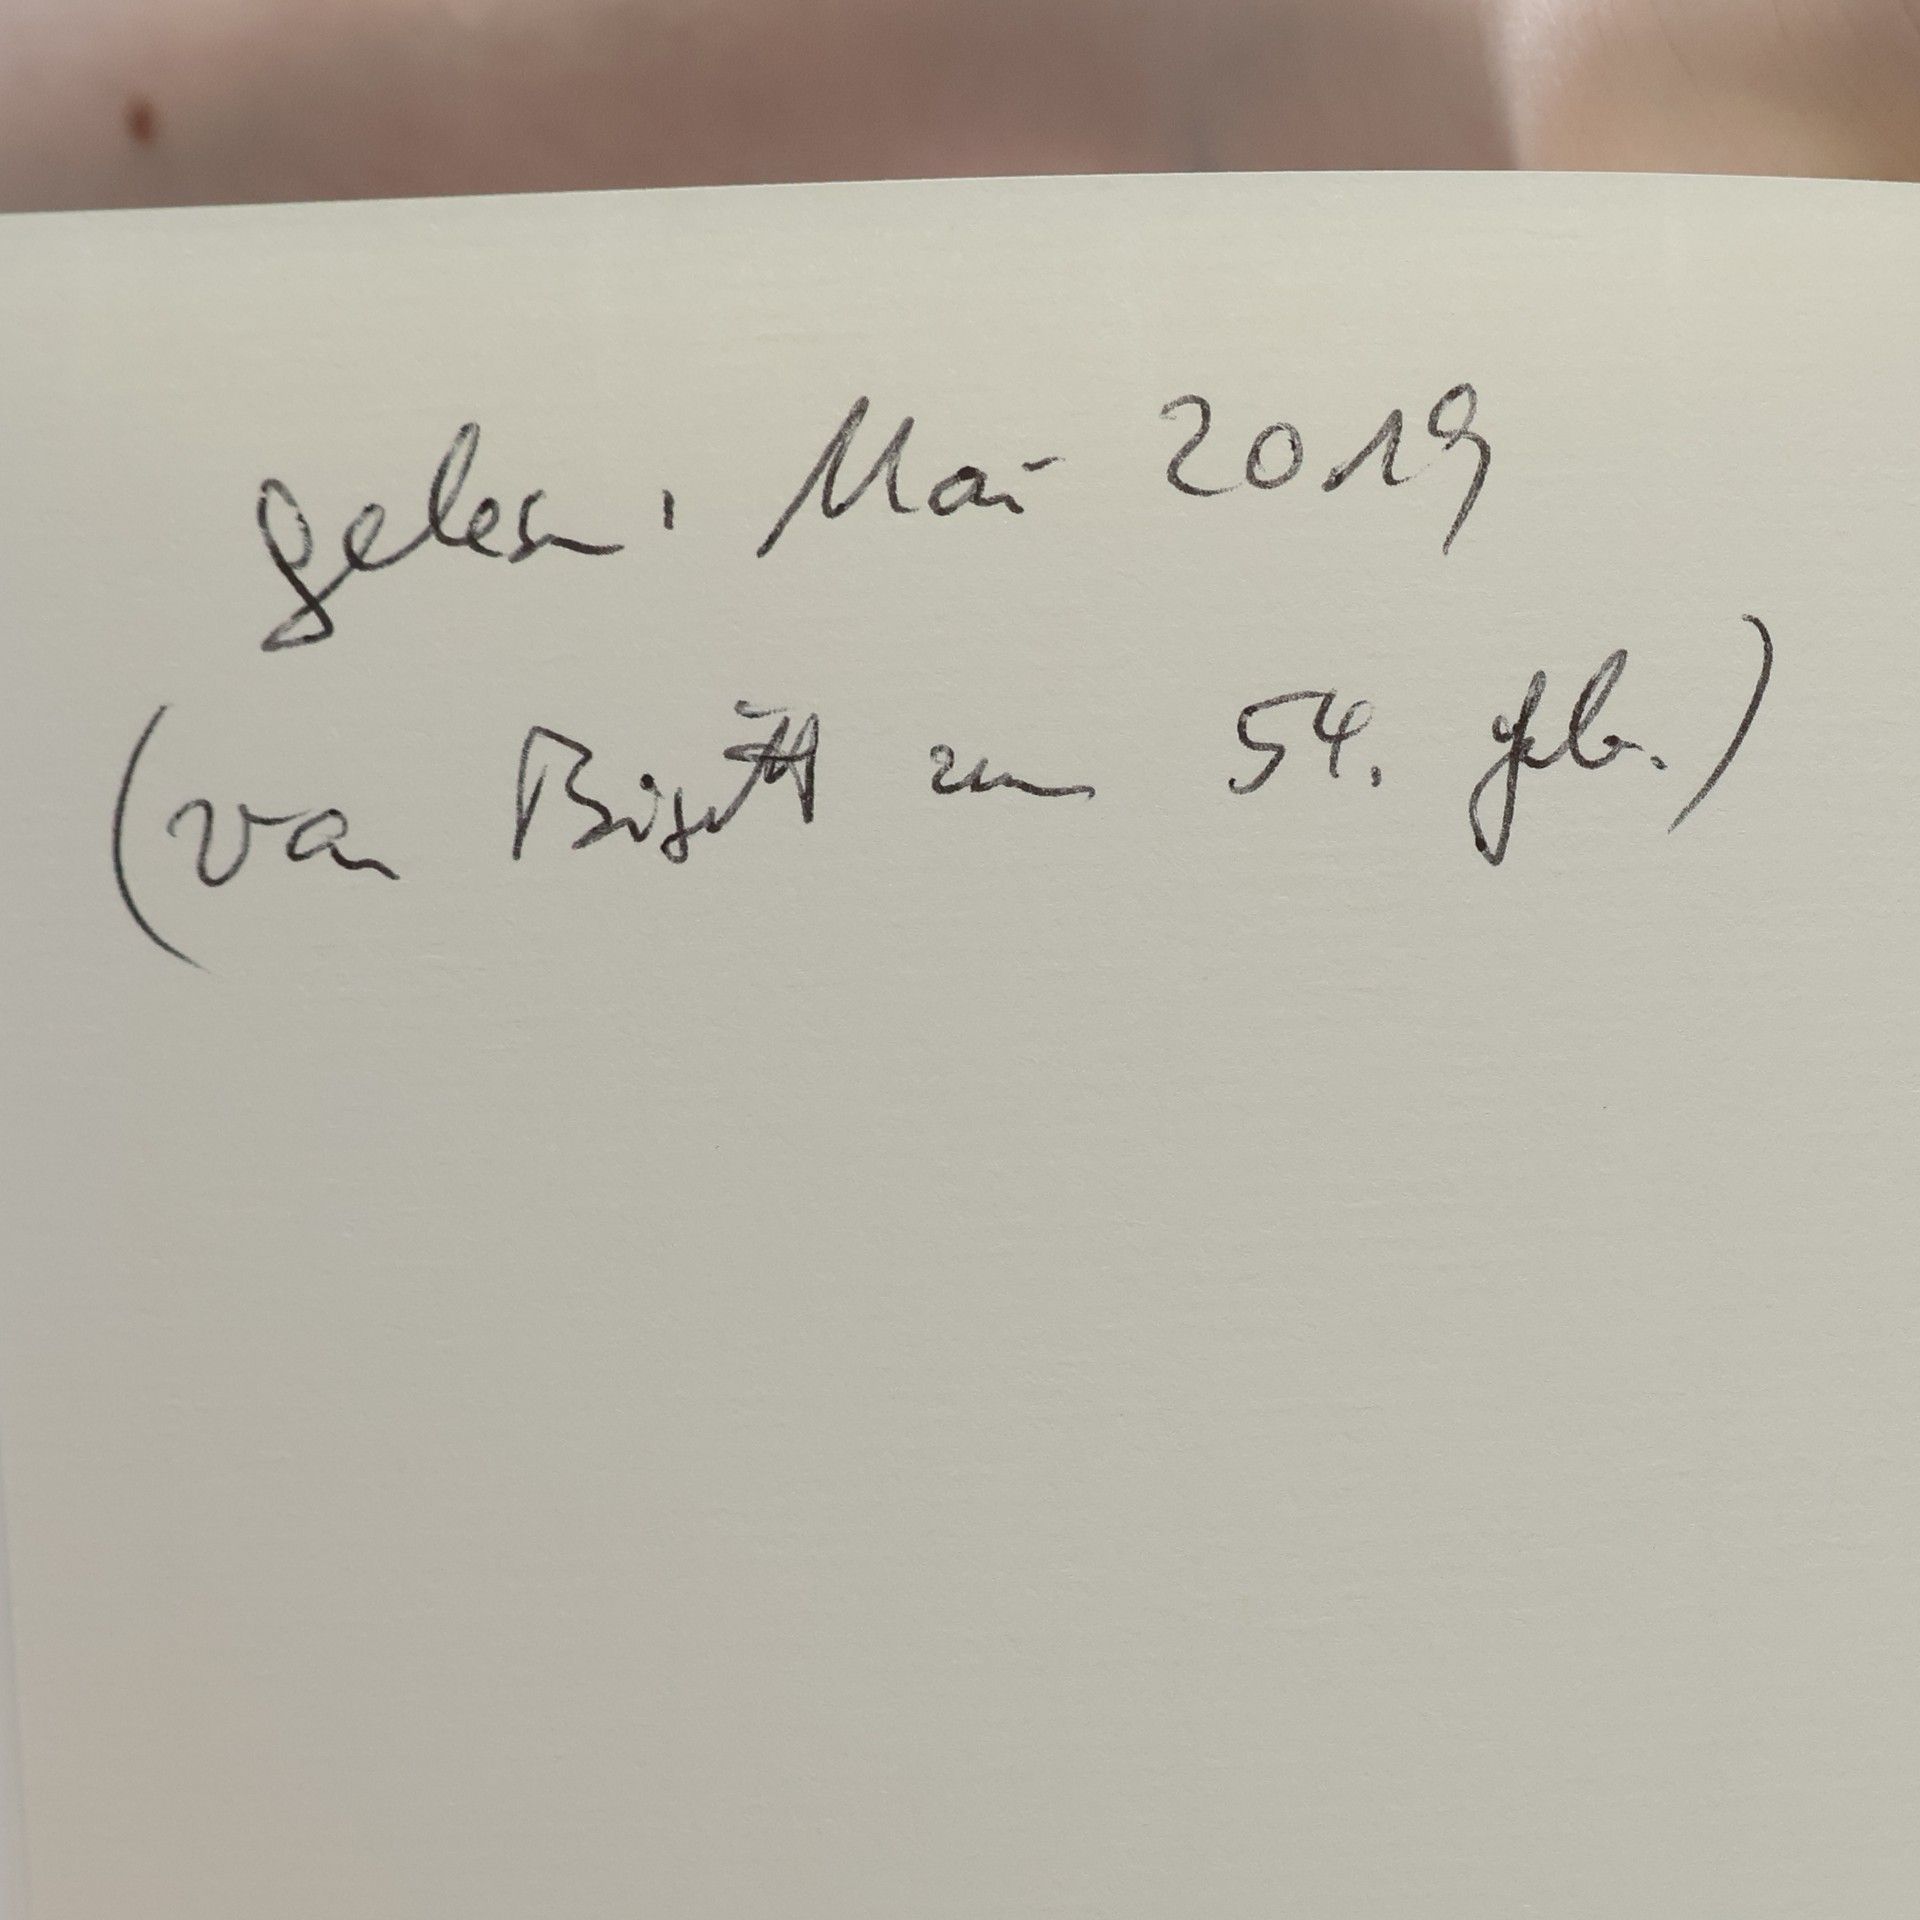 gelesen: Mai 2019
(von Birgitt zum 54. Geb.)